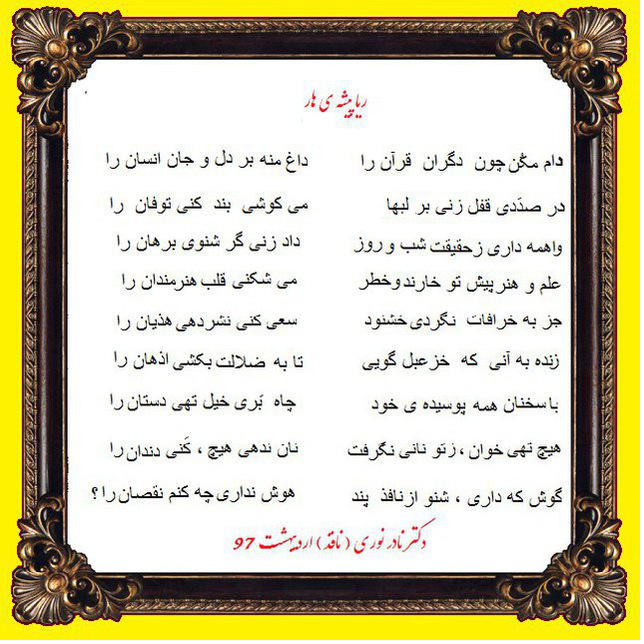 ریا پیشه ی هار
دام مکُن چون دگران قرآن را داغ منه بر دل و جان انسان را
در صدّدی قفل زنی بر لبها می کوشی بند کنی توفان را
واهمه داری زحقیقت شب و روز داد زنی گر شنوی برهان را
علم و هنر پیش تو خارند وخطر می شکنی قلب هنرمندان را
جز به خرافات نگردی خشنود سعی کنی نشردهی هذیان را
زنده به آنی که خزعبل گویی تا به ضلالت بکشی اذهان را
با سخنان همه پوسیده ی خود چاه بَری خیل تهی دستان را
هیچ تهی خوان ، زتو نانی نگرفت نان ندهی هیچ ، کَنی دندان را
گوش که داری ، شنو ازنافذ پند هوش نداری چه کنم نقصان را ؟
دکتر نادر نوری ( نافذ ) اردیبهشت 97